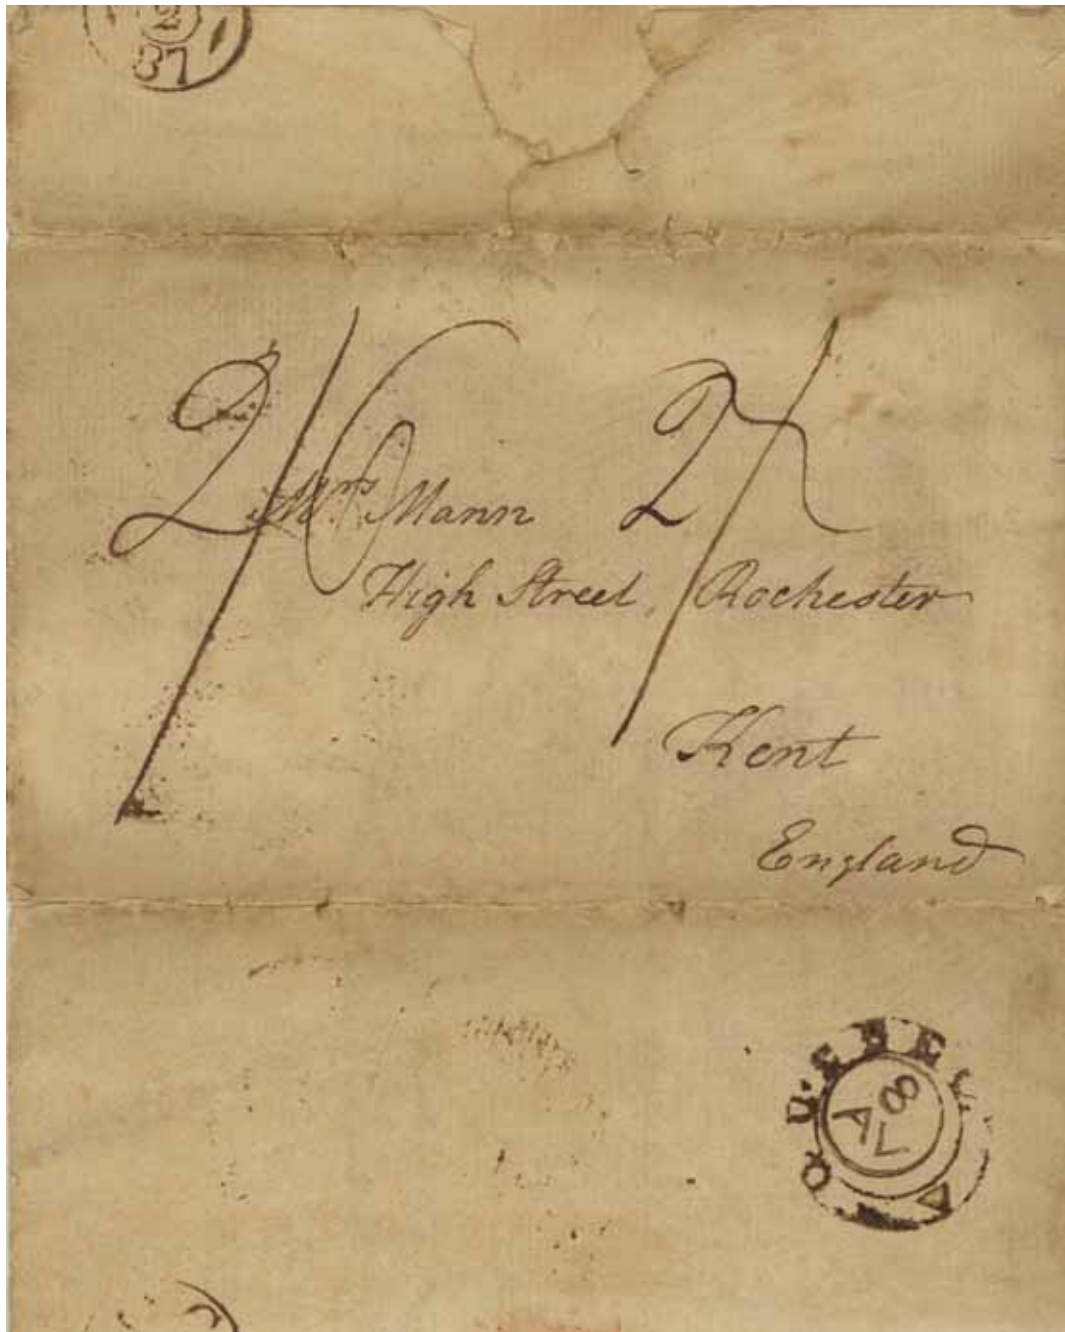 2
87
2/6
2/2
Mrs Mann
High Street, Rochester
Kent
England
QUEBEC
8
AV